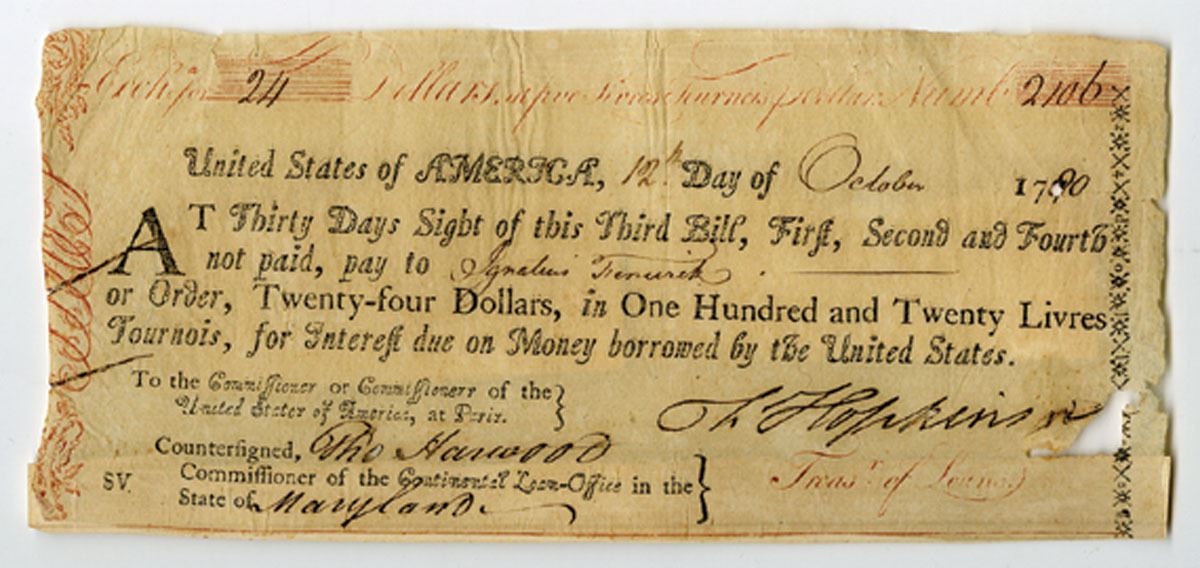 Exchᵃ for 24 Dollars, at five Livres Tournois ⅌ Dollar. Numb. 2106
United States of AMERICA, 12th Day of October 1780
AT Thirty Days Sight of this Third Bill, First, Second and Fourth
not paid, pay to Ignatius Fenwick
or Order, Twenty-four Dollars, in One Hundred and Twenty Livres
Tournois, for Interest due on Money borrowed by the United States.
To the Commissioner or Commissioners of the
United States of America, at Paris.
Countersigned, Tho Harwood
SV. Commissioner of the Continental Loan-Office in the
State of Maryland
Hopkinson
Treasr. of Loans